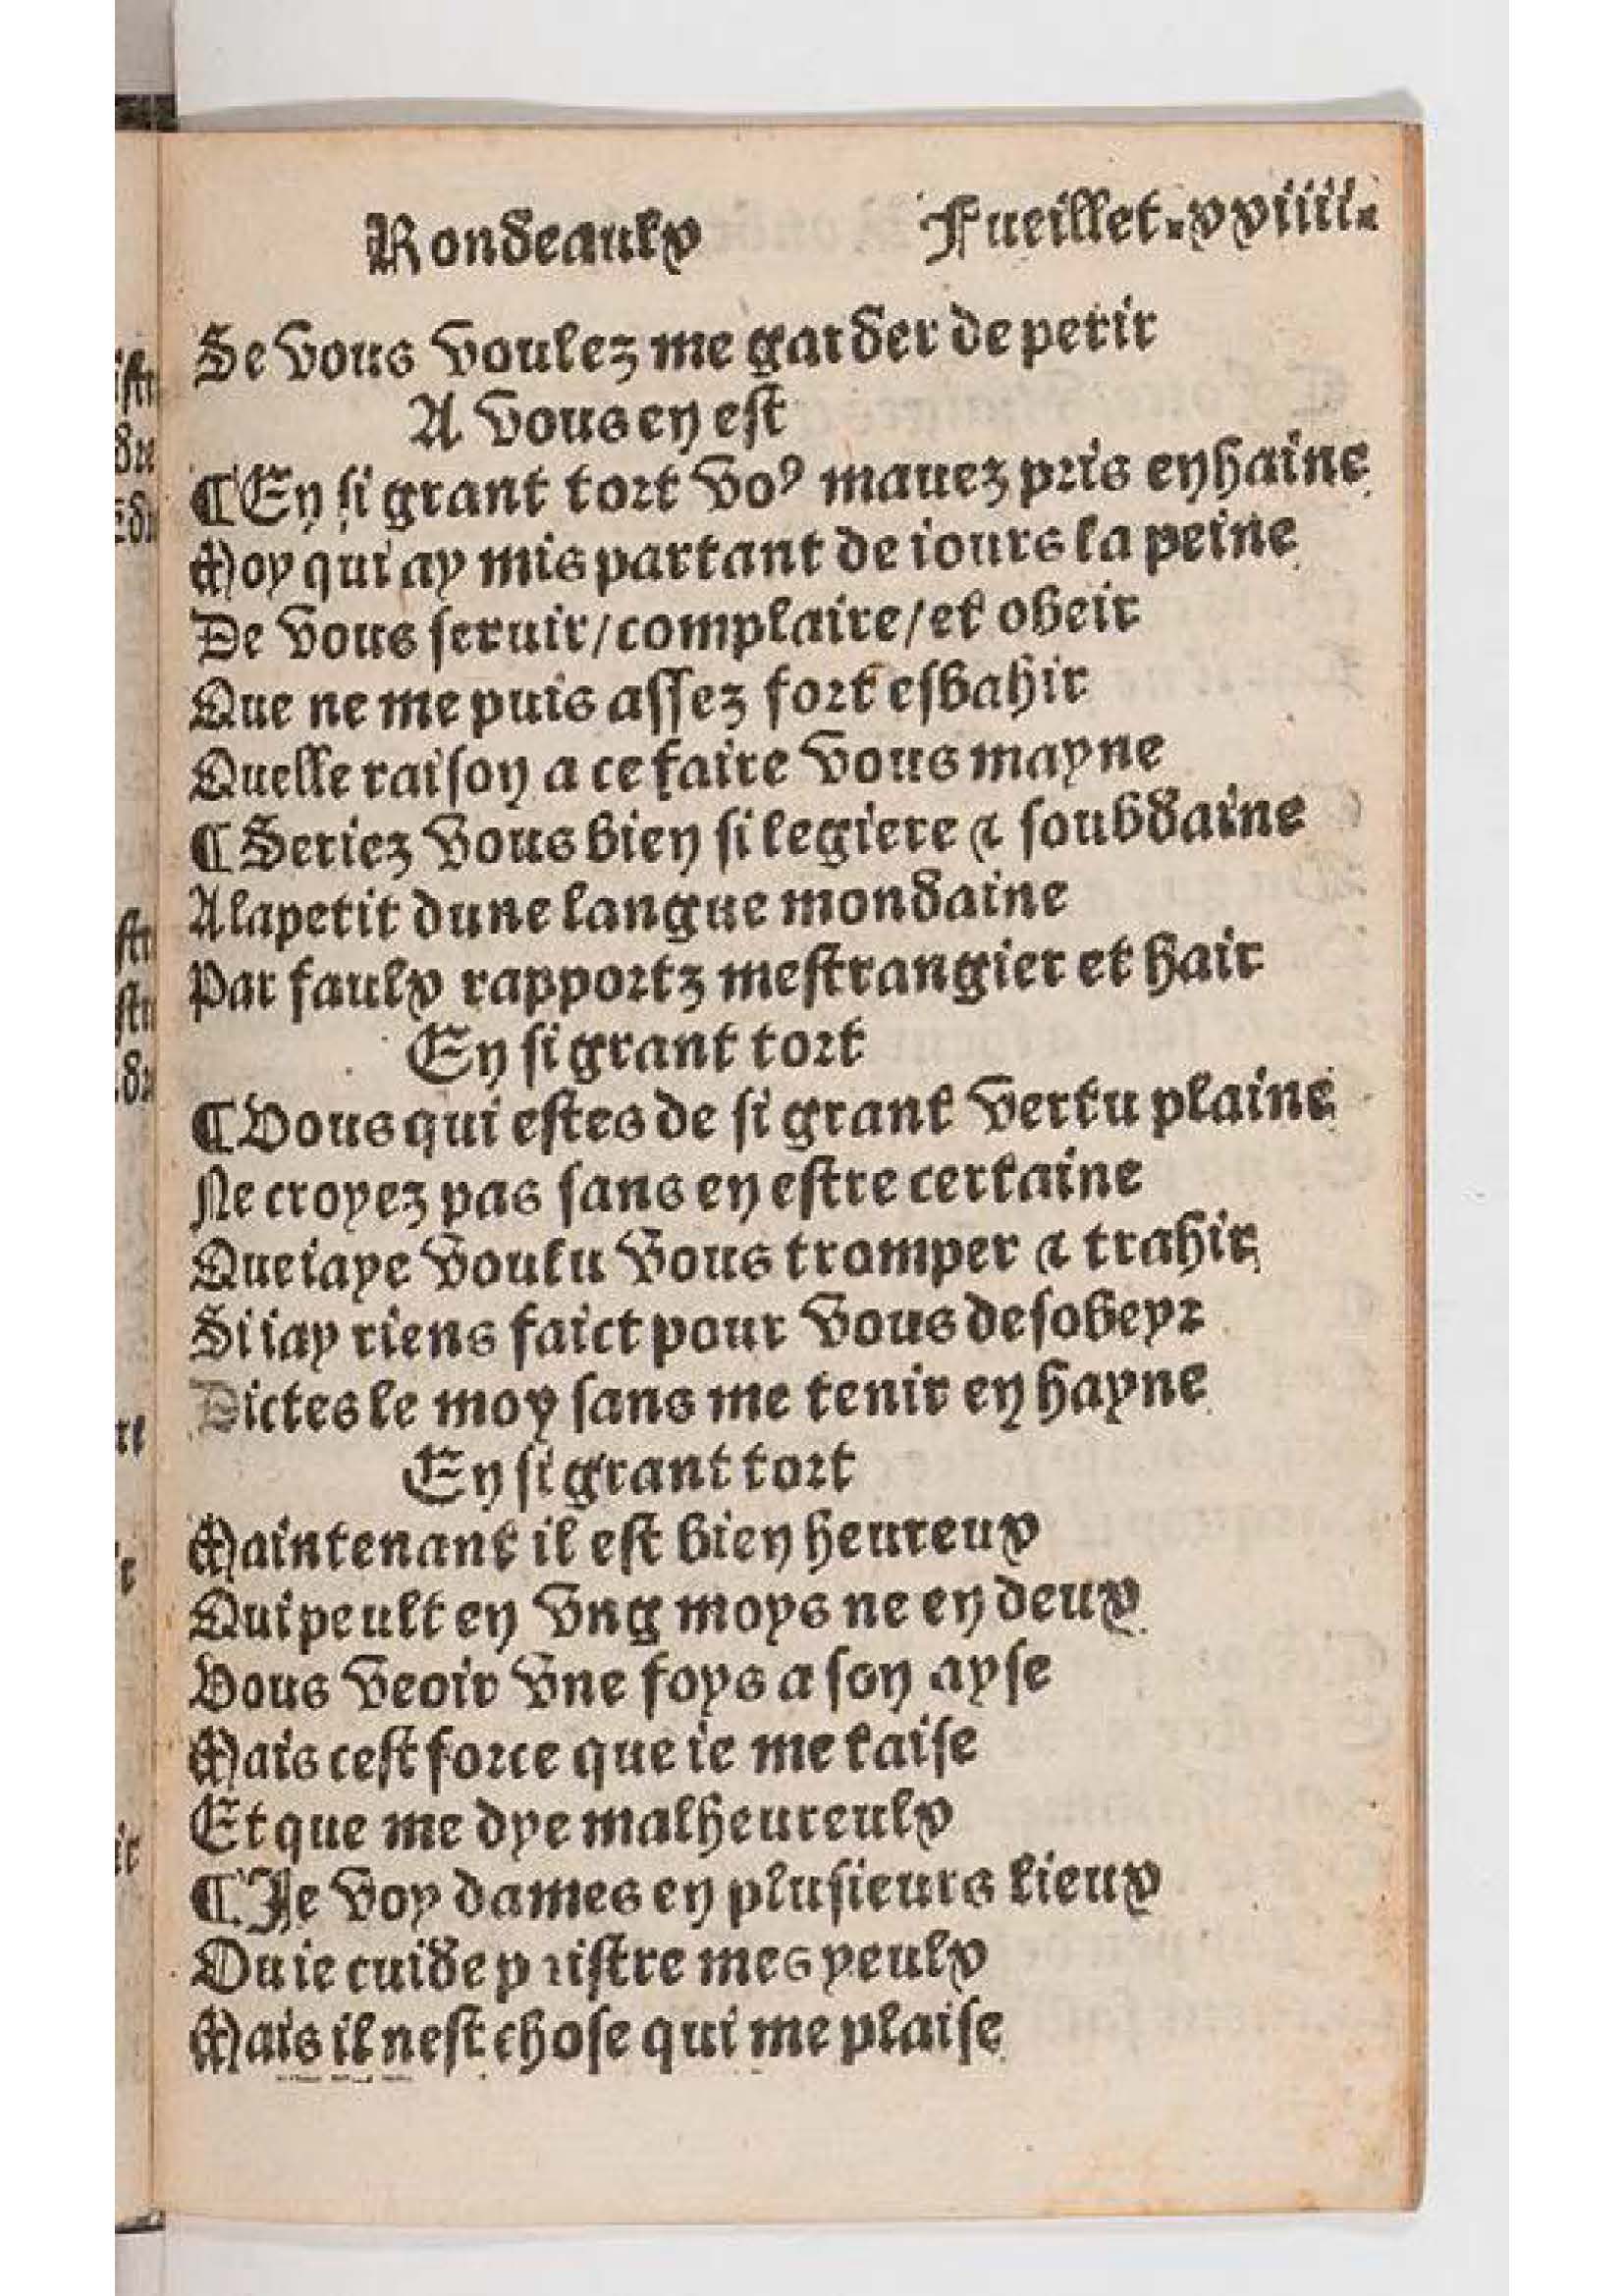 Rondeaulx Fueillet.xxiiii.
Se vous voulez me garder de perir
A vous en est
¶ En si grant tort voꝰ mauez pris en haine
Moy qui ay mis par tant de iours la peine
De vous seruir/complaire/et obeir
Que ne me puis assez fort esbahir
Quelle raison a ce faire vous mayne
¶ Seriez vous bien si legiere ⁊ soubdaine
A lapetit dune langue mondaine
Par faulx rapportz mestrangier et hair
En si grant tort
¶ Vous qui estes de si grant vertu plaine
Ne croyez pas sans en estre certaine
Que iaye voulu vous tromper ⁊ trahir
Si iay riens faict pour vous desobeyr
Dictes le moy sans me tenir en hayne
En si grant tort
Maintenant il est bien heureux
Qui peult en vng moys ne en deux
Vous veoir vne foys a son ayse
Mais cest force que ie me taise
Et que me dye malheureulx
¶ Je voy dames en plusieurs lieux
Ou ie cuide pristre mes yeulx
Mais il nest chose qui me plaise